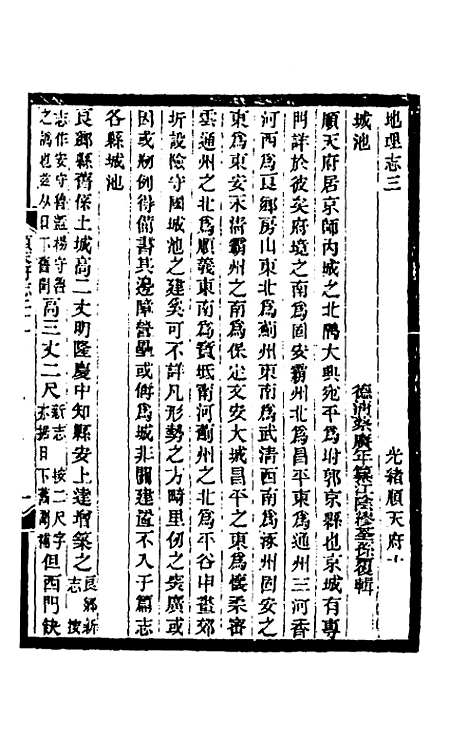 地理志三　光緒順天府十
城池　德清蔡賡年纂江陰繆荃孫復輯
順天府居京師內城之北隅大興宛平爲坿郭京縣也京城有專
門詳於彼矣府境之南爲固安霸州北爲昌平東爲通州三河香
河西爲良鄉房山東北爲薊州東南爲武清西南爲涿州固安之
東爲東安永淸霸州之南爲保定文安大城昌平之東爲懷柔密
雲通州之北爲順義東南爲寶坻南河薊州之北爲平谷申畫郊
圻設險守國城池之建奚可不詳凡形勢之方畸里例之袤廣或
因或剏例得備書其邊障營壘或倂爲城非關建置不入于篇志
各縣城池
良鄉縣舊係土城高二丈明隆慶中知縣安上達增築之良鄉新志按
志作安守魯証楊守魯之譌也並从日下舊聞高三丈二尺新志按二尺字亦據日下舊聞補但西門鈌